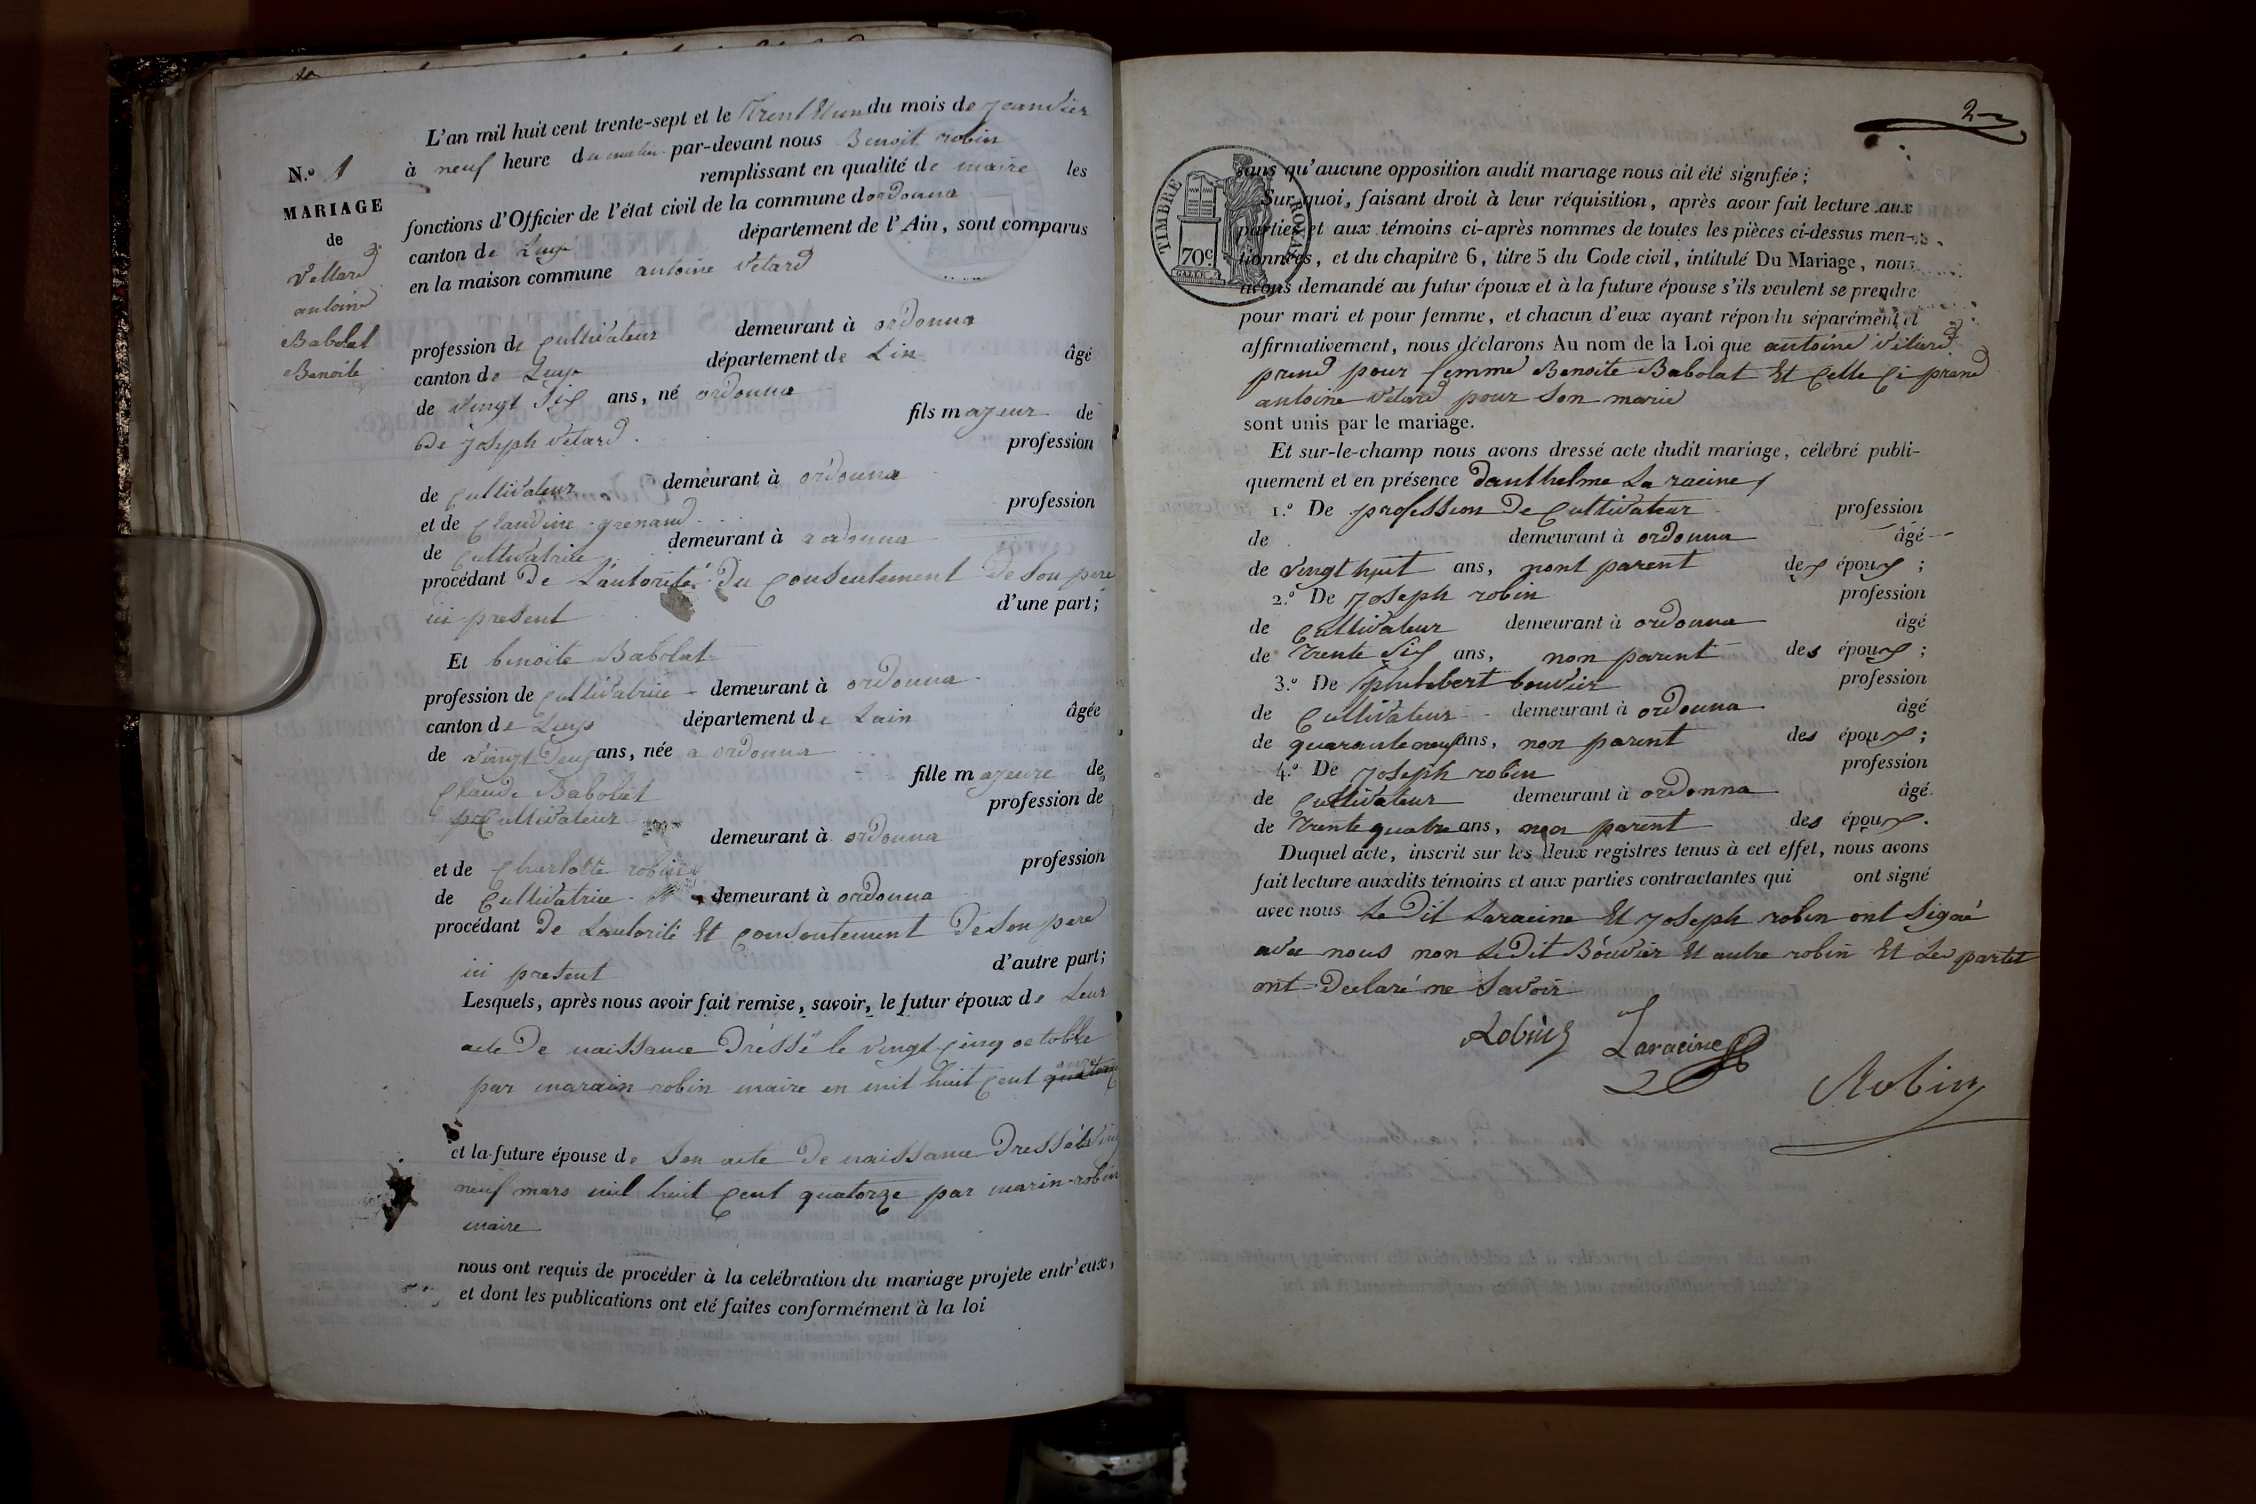 N.o 1
MARIAGE
de
Vettard
antoine
Babolat
Benoite
L'an mil huit cent trente-sept et le trent Hun du mois de janvier
à neuf heure du matin par-devant nous Benoit robin
remplissant en qualité de maire les
fonctions d'Officier de l'état civil de la commune dordonna
canton de Luys département de l'Ain, sont comparus
en la maison commune antoine Vetard
profession de Cultivateur demeurant à ordonna
canton de Luys département de Lin âgé
de vingt Six ans, né ordonna
fils majeur de
de joseph vetard profession
de Cultivateur demeurant à ordonna
et de Claudine grenand profession
de Cultivatrice demeurant à a ordonna
procédant De L'autorité Du Consentement De Son pere
ici present d'une part;
Et benoite Babolat
profession de Cultivatrice demeurant à ordonna
canton de Luys département de Lain âgée
de vingt Deux ans, née a ordonna
fille majeure de
Claude Babolat profession de
Cultivateur demeurant à ordonna
et de Charlotte robin profession
de Cultivatrice demeurant à ordonna
procédant De Lautorité Et Consentement De Son pere
ici present d'autre part;
Lesquels, après nous avoir fait remise, savoir, le futur époux de Leur
acte De naissance Dréssé le vingt Cinq octobre
par marain robin maire en mil huit Cent onze
et la future épouse de Son acte De naissance Dressé le Ving
neuf mars mil huit Cent quatorze par marin robin
maire
nous ont requis de procéder à la celébration du mariage projete entr'eux,
et dont les publications ont eté faites conformément à la loi
2
TIMBRE ROYAL
70c.
sans qu'aucune opposition audit mariage nous ait été signifiée;
Sur quoi, faisant droit à leur réquisition, après avoir fait lecture aux
parties et aux témoins ci-après nommes de toutes les pièces ci-dessus men-
tionnées, et du chapitre 6, titre 5 du Code civil, intitulé Du Mariage, nous
avons demandé au futur époux et à la future épouse s'ils veulent se prendre
pour mari et pour femme, et chacun d'eux ayant répondu séparément et
affirmativement, nous déclarons Au nom de la Loi que antoine vetard
prend pour femme Benoite Babolat Et Celle Ci prend
antoine Vetard pour Son marie
sont unis par le mariage.
Et sur-le-champ nous avons dressé acte dudit mariage, célébré publi-
quement et en présence Danthelme La racine
1.o De profession De Cultivateur profession
de demeurant à ordonna âgé
de vingt huit ans, nont parent des époux;
2.o De joseph robin profession
de Cultivateur demeurant à ordonna âgé
de trente Six ans, non parent des époux;
3.o De philibert bouvier profession
de Cultivateur demeurant à ordonna âgé
de quarante neuf ans, non parent des époux;
4.o De joseph robin profession
de Cultivateur demeurant à ordonna âgé
de trente quatre ans, non parent des époux.
Duquel acte, inscrit sur les deux registres tenus à cet effet, nous avons
fait lecture auxdits témoins et aux parties contractantes qui ont signé
avec nous Le Dit Laracine Et joseph robin ont Signé
avec nous non Le Dit Bouvier Et autre robin Et Les partet
ont Declaré ne Savoir
Robin Laracine
Robin